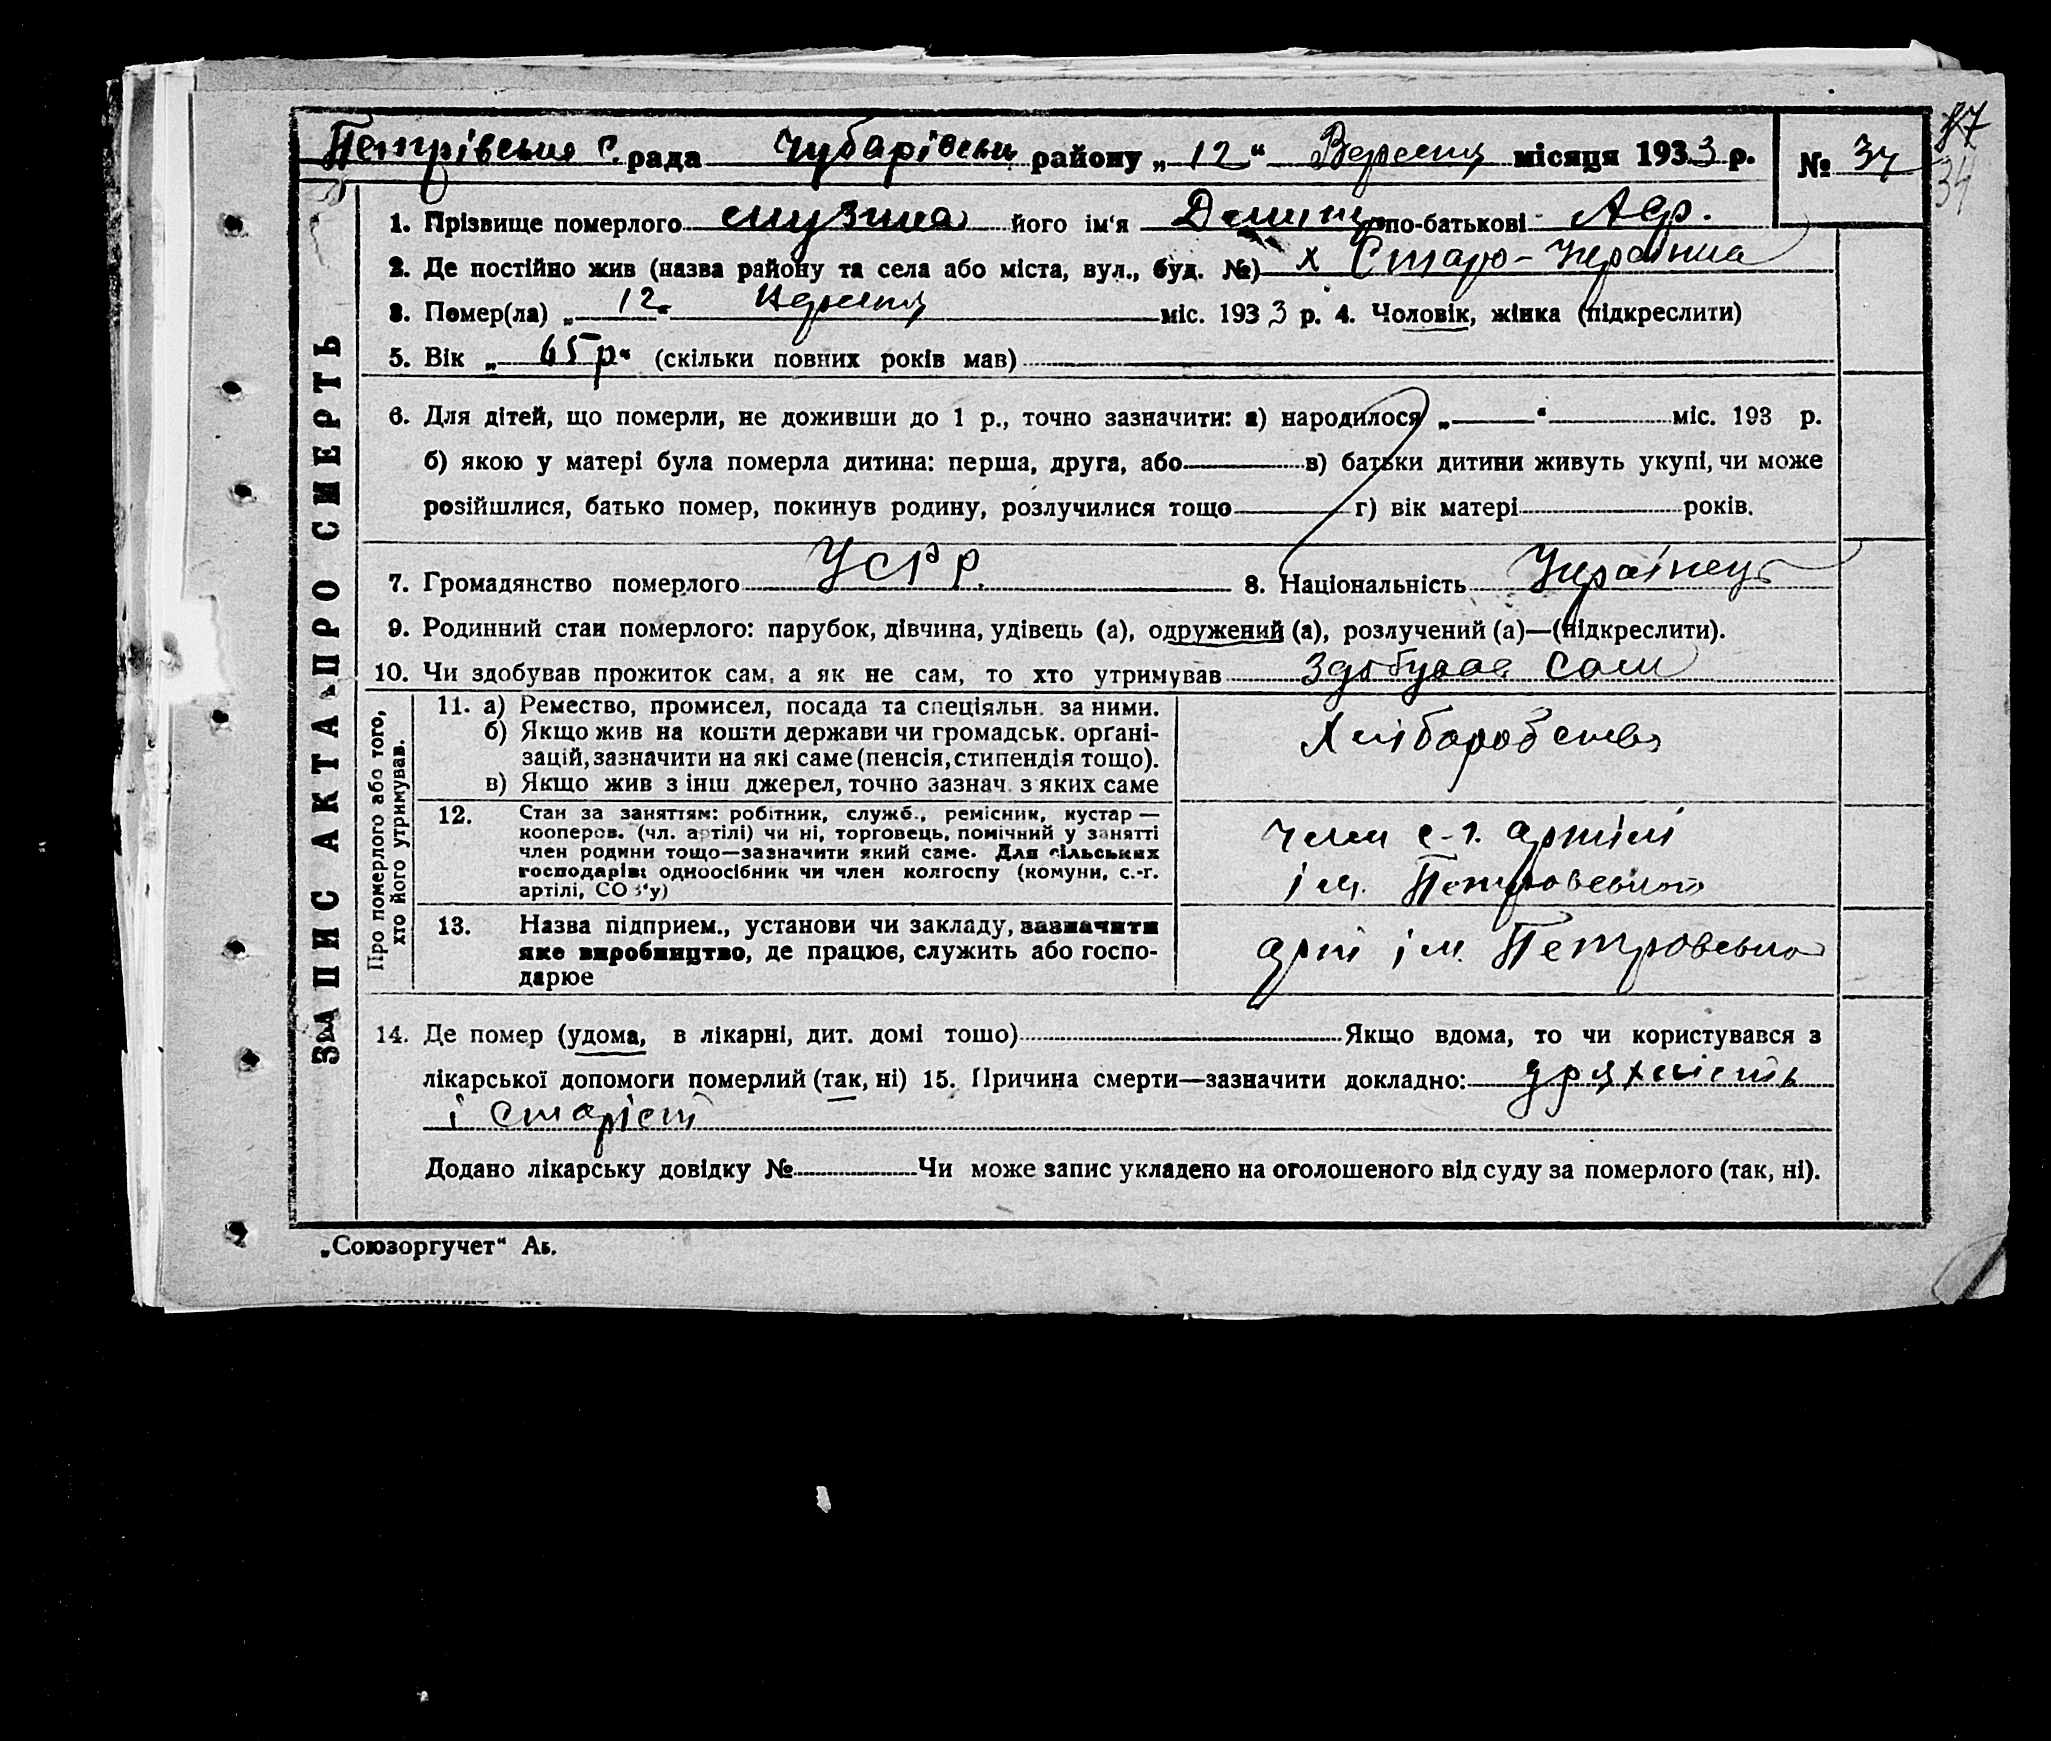 Петрівська с. рада Чубарівськ району „12“ Вересня місяця 1933 р. № 34
37
34
1. Прізвище померлого його ім'я по-батькові
2. Де постійно жив (назва району та села або міста, вул., буд. №) х Старо-Україна
3. Помер(ла) „12“ вересня міс. 1933 р. 4. Чоловік, жінка (підкреслити)
5. Вік „65 р“ (скільки повних років мав)
6. Для дітей, що померли, не доживши до 1 р., точно зазначити: а) народилося „ “ міс. 193 р.
б) якою у матері була померла дитина: перша, друга, або в) батьки дитини живуть укупі, чи може
розійшлися, батько помер, покинув родину, розлучилися тощо г) вік матері років.
7. Громадянство померлого УСРР. 8. Національність Українець
9. Родинний стан померлого: парубок, дівчина, удівець (а), одружений (а), розлучений (а)—(підкреслити).
10. Чи здобував прожиток сам, а як не сам, то хто утримував Здобував сам
ЗАПИС АКТА ПРО СМЕРТЬ
Про померлого або того,
хто його утримував.
11. а) Ремество, промисел, посада та спеціяльн. за ними.
б) Якщо жив на кошти держави чи громадськ. органі-
зацій, зазначити на які саме (пенсія, стипендія тощо).
в) Якщо жив з інш джерел, точно зазнач. з яких саме
Хліборобство
12. Стан за заняттям: робітник, служб., ремісник, кустар —
кооперов. (чл. артілі) чи ні, торговець, помічний у занятті
член родини тощо—зазначити який саме. Для сільських
господарів: одноосібник чи член колгоспу (комуни, с.-г.
артілі, СОЗ'у)
член с-г. артілі
ім. Петровського
13. Назва підприєм., установи чи закладу, зазначити
яке виробництво, де працює, служить або госпо-
дарює
арт ім. Петровсько
14. Де помер (удома, в лікарні, дит. домі тощо) Якщо вдома, то чи користувався з
лікарської допомоги померлий (так, ні) 15. Причина смерти—зазначити докладно: дряхлість
і старіст
Додано лікарську довідку № Чи може запис укладено на оголошеного від суду за померлого (так, ні).
„Союзоргучет“ Аь.